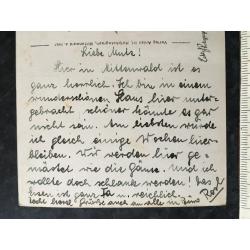 Liebe Mutz!
Hier in Mittenwald ist es
ganz herrlich. Ich bin in einem
wunderschönen Haus hier unter-
gebracht schöner könnte es gar
nicht sein. Am liebsten würde
ich gleich einige Wochen hier
bleiben. Wir werden hier ge-
mästet wie die Gänse. Und ich
wollte doch schlanke werden! Das
Essen ist ganz prima u. reichlich.
Grüße auch an alle in